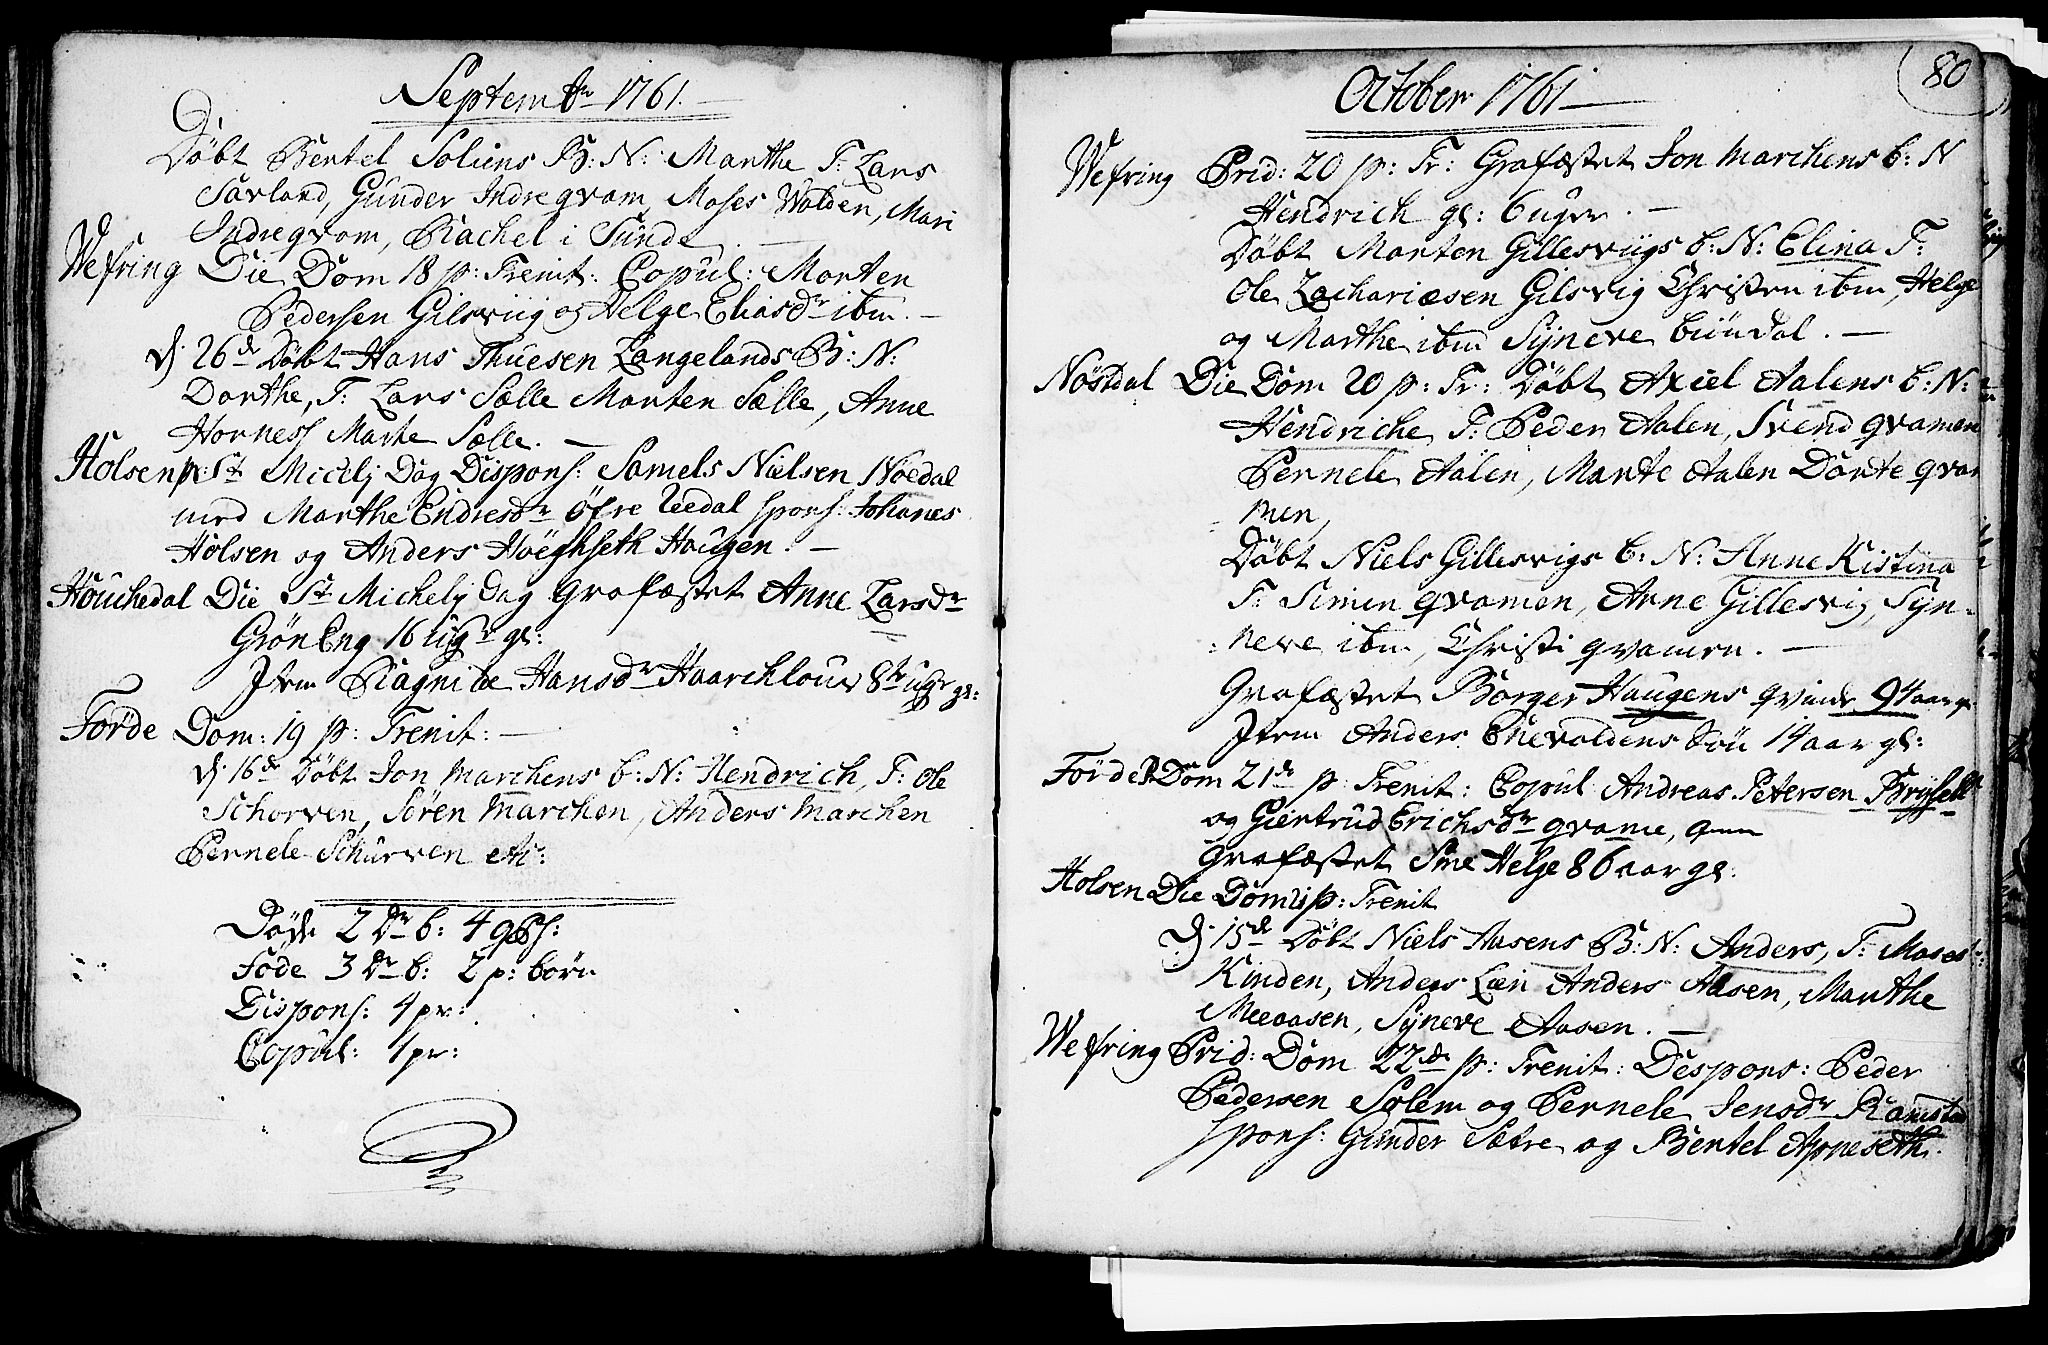 Septembr 1761.
Döbt Bentel Soliens B: N: Marthe F: Lars
Savland, Gunder Indreqvam, Moses Wolden, Mari
Indreqvam, Rachel i Sunde.
Wefring Die Dom 18 p: Trenit: Copul: Morten
Pedersen Gilsviig og Helge Eliasdr ibm.
D. 26de Döbt Hans Thuesen Langelands B: N:
Dorthe, F: Lars Sælle Morten Sælle, Anne
Hornes Marte Sælle.
Holsen p: St Michelj Dag Dispons: Samels Nielsen Noedal
med Marthe Endresdr Öfre spons: Johanes
Holsen og Anders Höeghseth Haugen.
Houchedal Die St Michelj Dag Grafæstet Anne Larsdr
GrönEng 16 ugr gl:
Item Ragnilde Hansdr Haarchloue 8te ugr gl:
Förde Dom: 19 p: Trenit:
D. 16de Döbt Jon Marchens b: N: Hendrich, F: Ole
Schorven, Sören Marchen, Anders Marchen
Pernele Schurven etc:
Döde 2 Dr b: 4
Föde 3 Dr b: 2 p: börn
Dispons: 4 pr:
Copul: 1 pr:
October 1761
80
Wefring Prid: 20 p: Tr: Grafæstet Jon Marchens b: N
Hendrich gl: 6 uger.
Döbt Morten Gillesviigs b: N: Elina F:
Ole Zachariæsen Gilsvig Christen ibm, Helge
og Marthe ibm Syneve
Nöstdal Die Dom 20 p: Tr: Döbt Axiel Aalens b: N:
Hendriche F: Peder Aalen, Svend qvamen
Pernele Aalen, Marte Aalen Dorte qva
men,
Döbt Niels Gillesvigs b: N: Anne Kistina
F: Simen qvamen, Anne Gillesvig, Syn-
neve ibm, Christi qvamen.
Grafæstet Borger Haugens qvinde 94 aar g:
Item Anders Enevoldens Sön 14 aar gl:
Förde Dom 21de p: Trenit: Copul Andreas Petersen
og Giertrud Erichsdr qvame,
Grafæstet Sme Helge 86 aar gl:
Holsen Die Dom 21 p: Trenit
D. 15de Döbt Niels Aasens B: N: Anders, F: Moses
Kinden, Anders Læn Anders Aasen, Marthe
Meeaasen, Syneve Aasen.
Wefring Prid: Dom 22de p: Trenit: Despons: Peder
Pedersen Solem og Pernele Jensdr Ramsta
spons: Gunder Sætre og Bentel Apneseth.